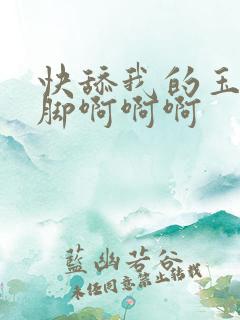 快舔我的玉
脚啊啊啊
蓝幽若谷
未经同意禁止转载